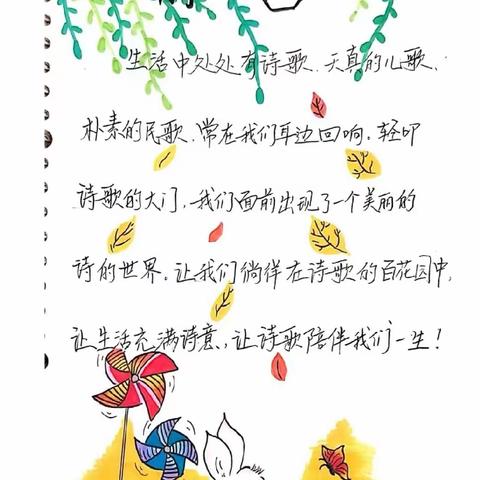 生活中处处有诗歌、天真的儿歌、
朴素的民歌、常在我们耳边回响。轻叩
诗歌的大门,我们面前出现了一个美丽的
诗的世界。让我们徜徉在诗歌的百花园中,
让生活充满诗意,让诗歌陪伴我们一生!